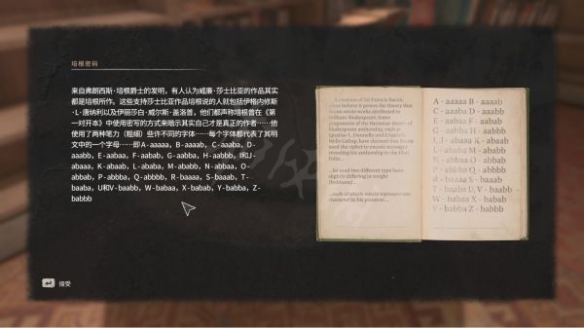 培根密码
来自弗朗西斯·培根爵士的发明。有人认为威廉·莎士比亚的作品其实
都是培根所作。这些支持莎士比亚作品培根说的人就包括伊格内修斯
·L·唐纳利以及伊丽莎白·威尔斯·盖洛普。他们都声称培根曾在《第
一对开本》中使用密写的方式来暗示其实自己才是真正的作者……他
使用了两种笔力（粗细）些许不同的字体……每个字体都代表了其明
文中的一个字母……即A-aaaaa、B-aaaab、C-aaaba、D-
aaabb、E-aabaa、F-aabab、G-aabba、H-aabbb、I和J-
abaaa、K-abaab、L-ababa、M-ababb、N-abbaa、O-
abbab、P-abbba、Q-abbbb、R-baaaa、S-baaab、T-
baaba、U和V-baabb、W-babaa、X-babab、Y-babba、Z-
babbb
A - aaaaa B - aaaab
C - aaaba D - aaabb
E - aabaa F - aabab
G - aabba H - aabbb
I,J - abaaa K - abaab
L - ababa M - ababb
N - abbaa O - abbab
P - abbba Q - abbbb
R - baaaa S - baaab
T - baaba U,V - baabb
W - babaa X - babab
Y - babba Z - babbb
接受